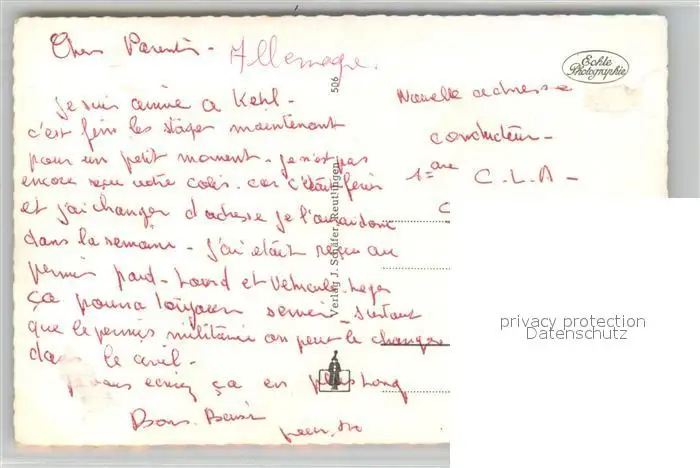 Chers Parents - Allemagne.
Je suis arrivé a Kehl -
c'est fini les stages maintenant
pour un petit moment - je n'est pas
encore reçu votre colis. car c'était ferié
et j'ai changer d'adresse je l'aurai donc
dans la semaine - j'ai était reçu au
permis poid-Lourd et Vehicule-Leger
ça pourra toujour servir - surtout
que le permis militaire on peut le changer
dans le civil -
vous ecrirez ça en plus long
Bons Baisers
506
Verlag J. Schäfer, Reutlingen
Echte
Photographie
Nouvelle adresse
conducteur -
C.L.A -
privacy protection
Datenschutz